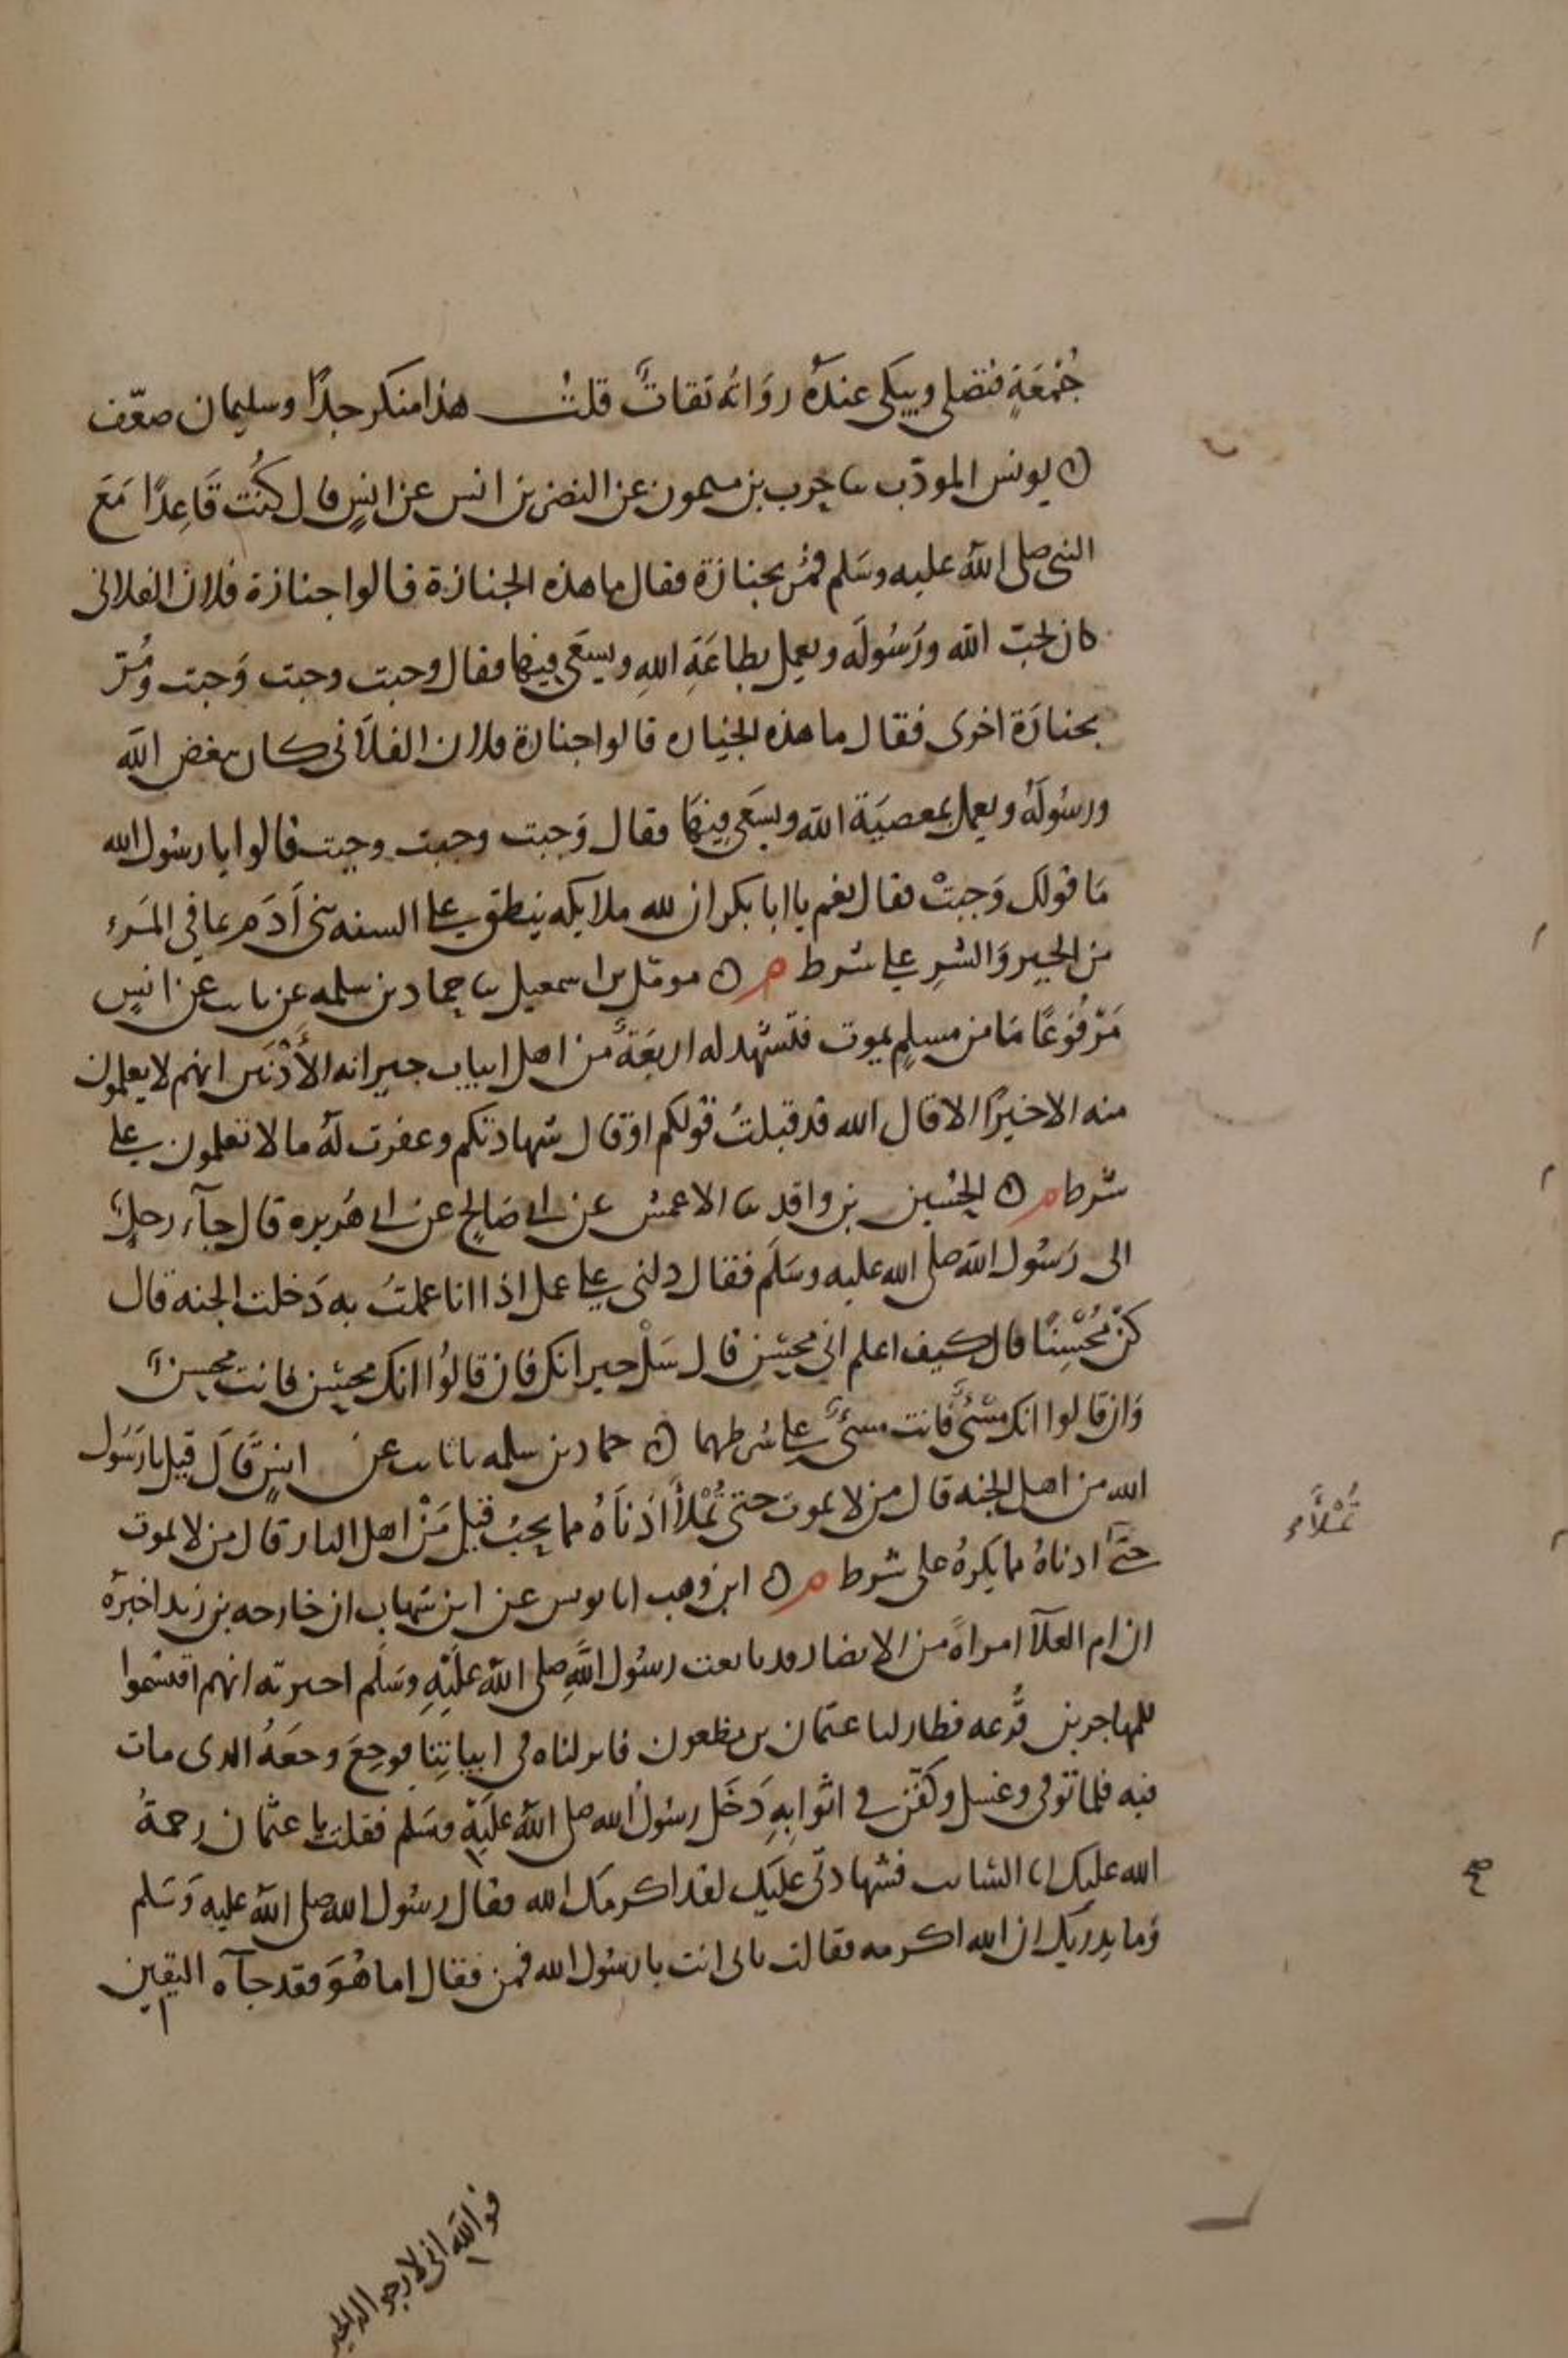 جُمْعَةٍ فتصلي ويبكي عندهُ رُوَاتُه ثقاتٌ قلتُ هذا منكر جدًا وسليمان ضعّف
ن يونس المودّب ثنا حرب بن ميمون عن النضر بن انس عن انسٍ قال كُنت قَاعِدًا مَعَ
النبي صلى الله عليه وسَلم فمُر بجنازة فقال ما هذه الجنازة قالوا جنازة فلان الفلاني
كان يحبّ الله ورَسُولَه ويعمل بطاعَةِ اللهِ ويسعَى فيها فقال وجبت وجبت وَجبت ومُرّ
بجنازَة اخرى فقال ما هذه الجنازه قالوا جنازة فلان الفلاَني كان يبغض اللهَ
ورسُولَهُ ويعمل بمعصيَة الله ويسعَى فيهَا فقال وَجبت وجبت وجبت قالوا يا رسُول الله
مَا قولك وَجبتْ فقال نعم يا ابا بكر ان لله ملايكه ينطق على السنه بني آدَم بما في المَرء
من الخير وَالشرِ على شرط م ن مومّل بن اسمعيل ثنا حماد بن سلمه عن ثابت عن انسٍ
مَرْفُوعًا مَا من مسلمٍ يموت فتشهد له اربعَةٌ من اهل ابيات جيرانه الأَدْنَين انهم لا يعلمون
منه الا خيرًا الا قال الله قد قبلتُ قولكم او قال شهادتكم وغفرت لهُ ما لا تعلمون على
شرط م ن الحُسين بن واقد ثنا الاعمش عن ابي صَالحٍ عن ابي هُريره قال جآء رجلٌ
الى رَسُول الله صلى الله عليه وسَلَم فقال دلني على عمل اذا انا عملتُ به دَخلت الجنه قال
كنْ مُحْسِنًا قال كيف اعلم اني محسِن قال سَلْ جيرانك فان قالُوا انك محسِن فانت محسن
وَان قالوا انك مسُئٌ فانت مسئٌ على شرطهما ن حماد بن سلمه نا ثابت عن انسٍ قَالَ قيل يا رَسُول
الله من اهل الجنه قال من لا يموت حتى تُمْلأَ اذناهُ مما يحبُ قيل مَنْ اهل النار قال من لا يموت
حتى اذناهُ مما يكرهُ على شرط م ن ابن وهب انا يونس عن ابن شهاب ان خارجه بن زيد اخبرهُ
ان ام العلآ امراةً من الانصار قد بايعت رسُول اللهِ صلى الله علَيْهِ وسَلَم اخبرته انهم اقتسَموا
للمهاجرين قُرعه فطار لنا عثمان بن مظعون فانزلناه في ابياتِنا فوجِعَ وجعَهُ الذى مات
فيه فلما توفى وغسل وكفّن في اثوابِهِ دَخَل رسُولُ الله صلى الله علَيْهِ وسَلم فقلت يا عثمان رحمةُ
الله عليك ابا السائب فشهادتي علَيك لقد اكرمك الله فقال رسُول الله صلى الله عليه وَسَلم
وَما يدريك ان الله اكرمه فقالت بابى انت يا رسُول الله فمن فقال اما هُوَ فقد جآه اليقين
تُمْلأَ
فوالله اني لارجو له الخير